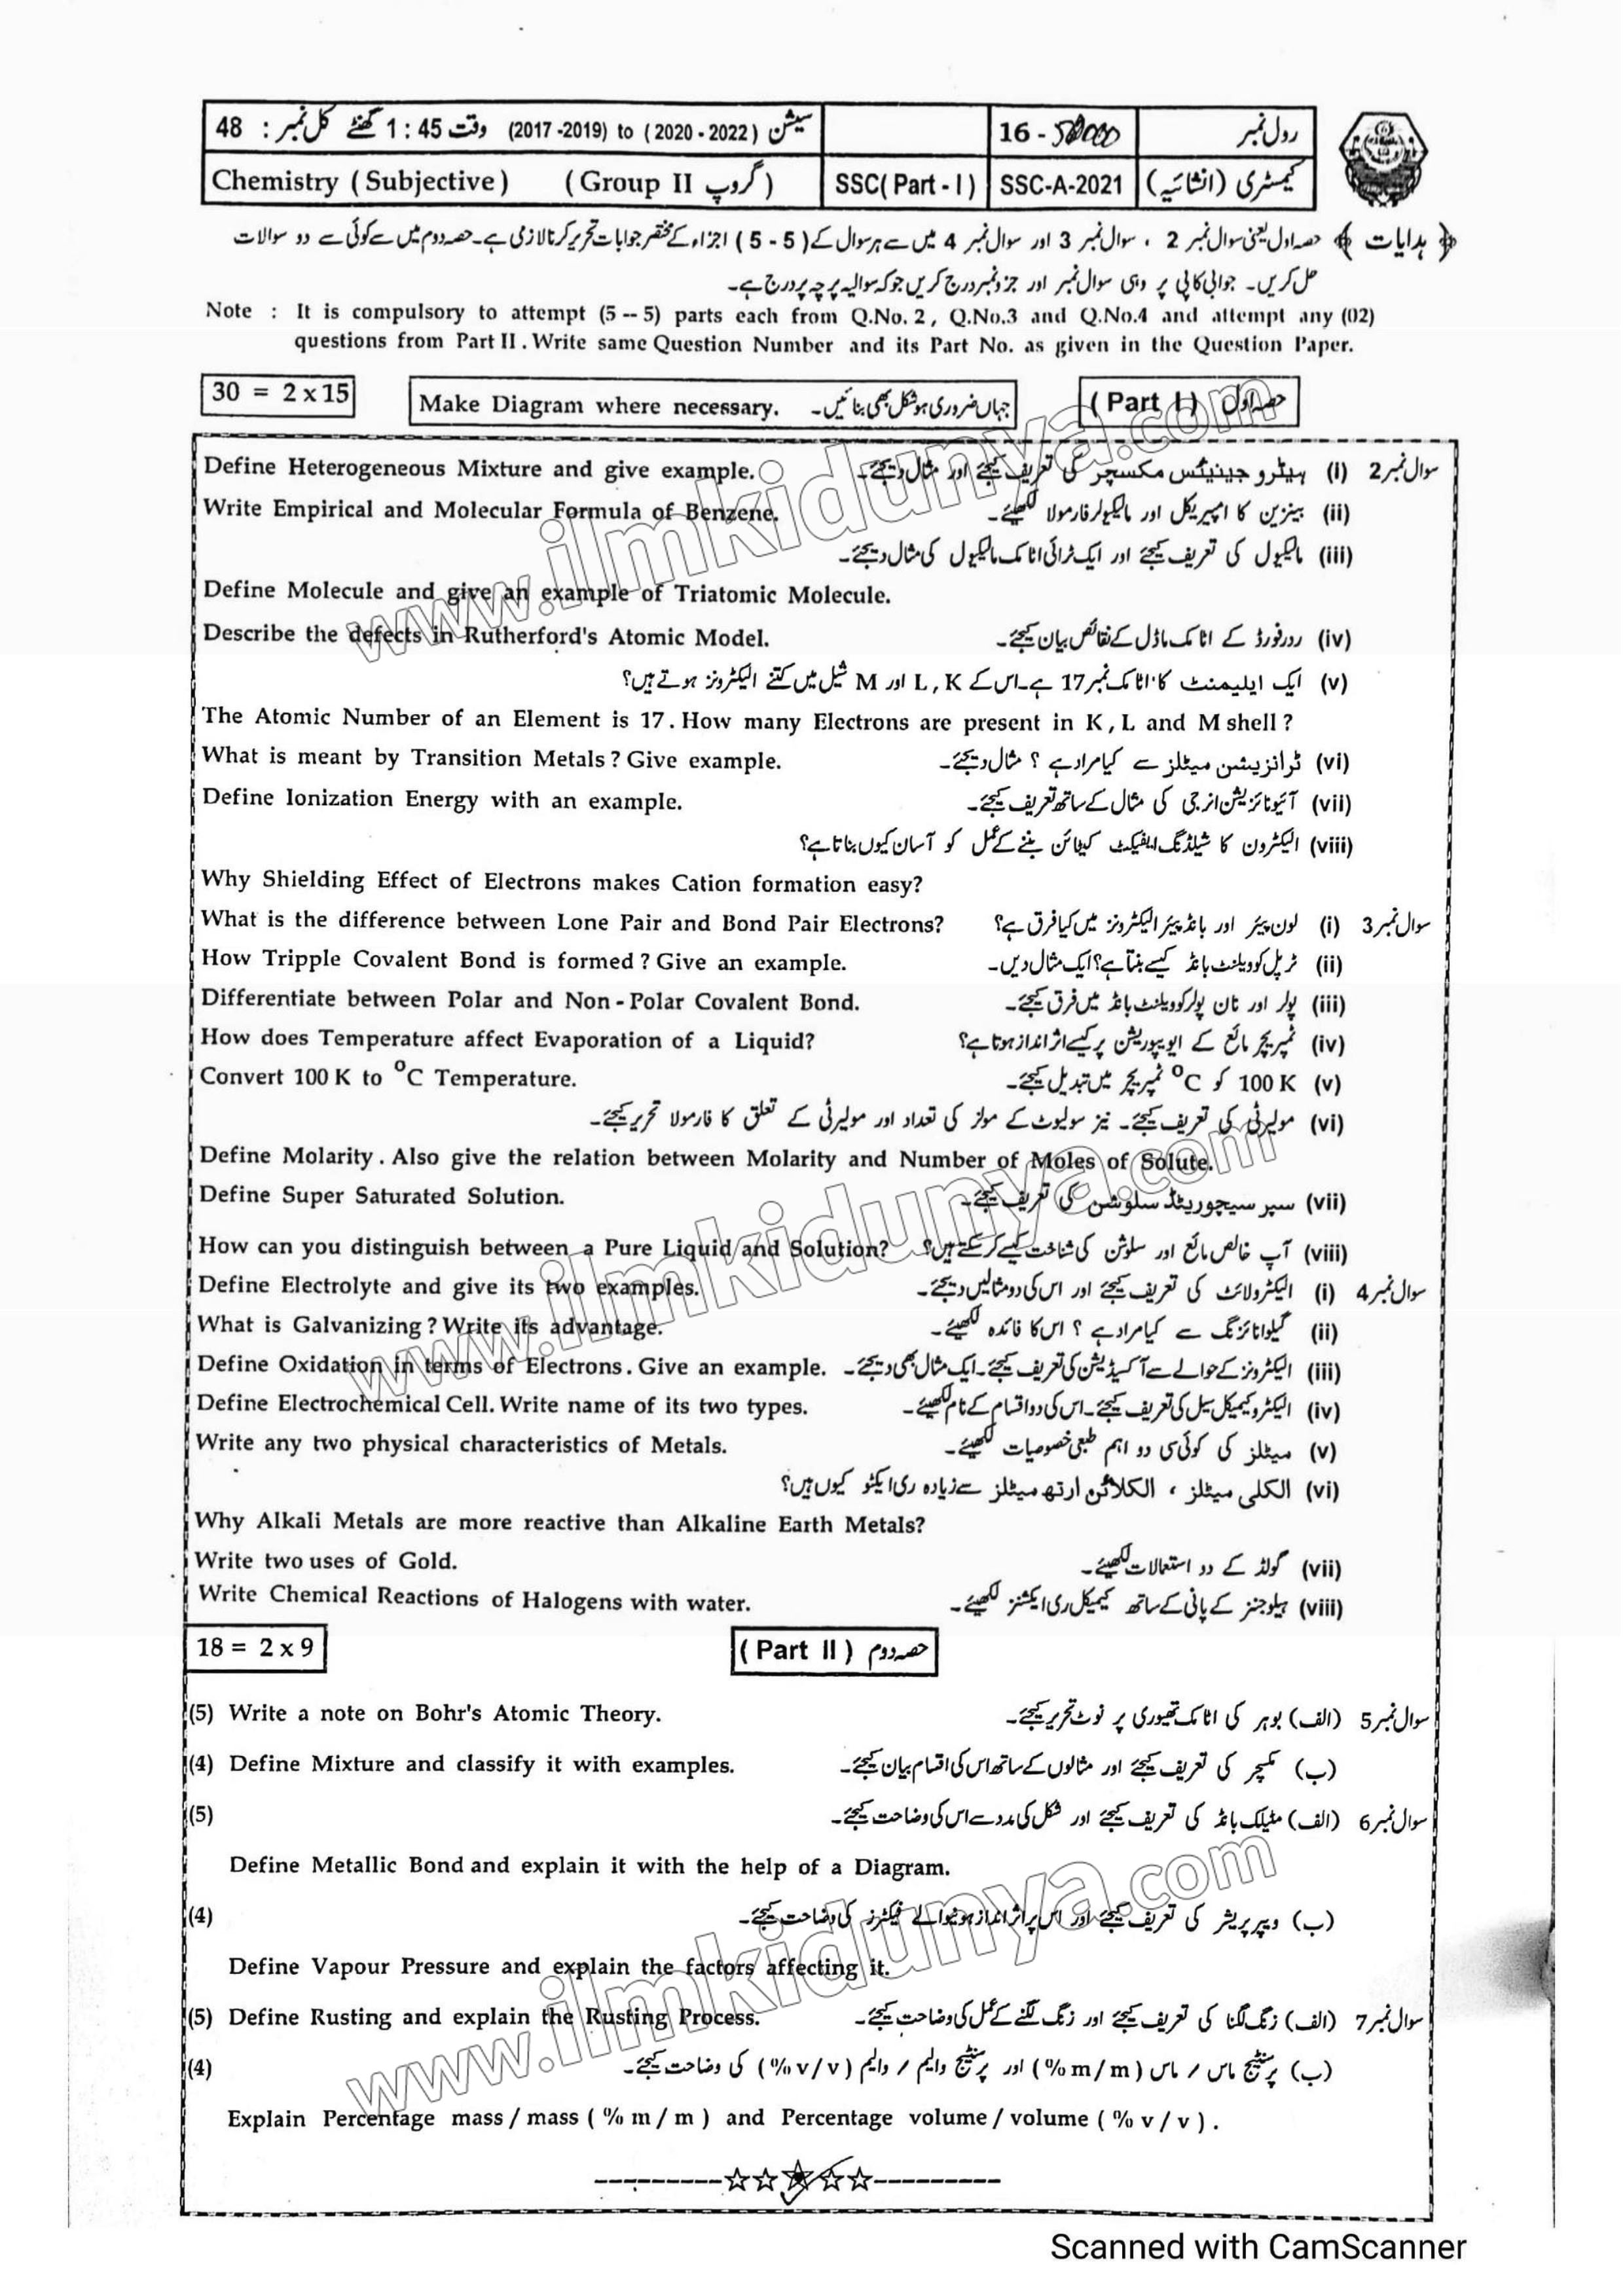 48 : کل نمبر وقت 1 : 45 گھنٹے (2017 -2019) to (2020 - 2022) سیشن 16 - رول نمبر
Chemistry (Subjective) (Group II گروپ) SSC(Part - I) SSC-A-2021 کیمسٹری (انشائیہ)
﴿ ہدایات ﴾ حصہ اول یعنی سوال نمبر 2 ، سوال نمبر 3 اور سوال نمبر 4 میں سے ہر سوال کے (5 - 5) اجزاء کے مختصر جوابات تحریر کرنا لازمی ہے۔ حصہ دوم میں سے کوئی سے دو سوالات
حل کریں۔ جوابی کاپی پر وہی سوال نمبر اور جزو نمبر درج کریں جو کہ سوالیہ پرچہ پر درج ہے۔
Note : It is compulsory to attempt (5 -- 5) parts each from Q.No. 2 , Q.No.3 and Q.No.4 and attempt any (02)
questions from Part II . Write same Question Number and its Part No. as given in the Question Paper.
30 = 2 x 15 Make Diagram where necessary. جہاں ضروری ہو شکل بھی بنائیں۔ (Part I) حصہ اول
Define Heterogeneous Mixture and give example. سوال نمبر 2 (i) ہیٹرو جینیئس مکسچر کی تعریف کیجئے اور مثال دیجئے۔
Write Empirical and Molecular Formula of Benzene. (ii) بینزین کا امپیریکل اور مالیکیولر فارمولا لکھیئے۔
(iii) مالیکیول کی تعریف کیجئے اور ایک ٹرائی اٹامک مالیکیول کی مثال دیجئے۔
Define Molecule and give an example of Triatomic Molecule.
Describe the defects in Rutherford's Atomic Model. (iv) ردرفورڈ کے اٹامک ماڈل کے نقائص بیان کیجئے۔
(v) ایک ایلیمنٹ کا اٹامک نمبر 17 ہے۔ اس کے L , K اور M شیل میں کتنے الیکٹرونز ہوتے ہیں؟
The Atomic Number of an Element is 17 . How many Electrons are present in K , L and M shell ?
What is meant by Transition Metals ? Give example. (vi) ٹرانزیشن میٹلز سے کیا مراد ہے ؟ مثال دیجئے۔
Define Ionization Energy with an example. (vii) آئیونائزیشن انرجی کی مثال کے ساتھ تعریف کیجئے۔
(viii) الیکٹرون کا شیلڈنگ ایفیکٹ کیٹائن بننے کے عمل کو آسان کیوں بناتا ہے؟
Why Shielding Effect of Electrons makes Cation formation easy?
What is the difference between Lone Pair and Bond Pair Electrons? سوال نمبر 3 (i) لون پیئر اور بانڈ پیئر الیکٹرونز میں کیا فرق ہے؟
How Tripple Covalent Bond is formed ? Give an example. (ii) ٹرپل کوویلنٹ بانڈ کیسے بنتا ہے؟ ایک مثال دیں۔
Differentiate between Polar and Non - Polar Covalent Bond. (iii) پولر اور نان پولر کوویلنٹ بانڈ میں فرق کیجئے۔
How does Temperature affect Evaporation of a Liquid? (iv) ٹمپریچر مائع کے ایوپوریشن پر کیسے اثر انداز ہوتا ہے؟
Convert 100 K to °C Temperature. (v) 100 K کو °C ٹمپریچر میں تبدیل کیجئے۔
(vi) مولیرٹی کی تعریف کیجئے۔ نیز سولیوٹ کے مولز کی تعداد اور مولیرٹی کے تعلق کا فارمولا تحریر کیجئے۔
Define Molarity . Also give the relation between Molarity and Number of Moles of Solute.
Define Super Saturated Solution. (vii) سپر سیچوریٹڈ سلوشن کی تعریف کیجئے۔
How can you distinguish between a Pure Liquid and Solution? (viii) آپ خالص مائع اور سلوشن کی شناخت کیسے کر سکتے ہیں؟
Define Electrolyte and give its two examples. سوال نمبر 4 (i) الیکٹرولائٹ کی تعریف کیجئے اور اس کی دو مثالیں دیجئے۔
What is Galvanizing ? Write its advantage. (ii) گیلوانائزنگ سے کیا مراد ہے ؟ اس کا فائدہ لکھیئے۔
Define Oxidation in terms of Electrons . Give an example. (iii) الیکٹرونز کے حوالے سے آکسیڈیشن کی تعریف کیجئے۔ ایک مثال بھی دیجئے۔
Define Electrochemical Cell. Write name of its two types. (iv) الیکٹروکیمیکل سیل کی تعریف کیجئے۔ اس کی دو اقسام کے نام لکھیئے۔
Write any two physical characteristics of Metals. (v) میٹلز کی کوئی سی دو اہم طبعی خصوصیات لکھیئے۔
(vi) الکلی میٹلز ، الکلائن ارتھ میٹلز سے زیادہ ری ایکٹو کیوں ہیں؟
Why Alkali Metals are more reactive than Alkaline Earth Metals?
Write two uses of Gold. (vii) گولڈ کے دو استعمالات لکھیئے۔
Write Chemical Reactions of Halogens with water. (viii) ہیلوجنز کے پانی کے ساتھ کیمیکل ری ایکشنز لکھیئے۔
18 = 2 x 9 (Part II) حصہ دوم
(5) Write a note on Bohr's Atomic Theory. سوال نمبر 5 (الف) بوہر کی اٹامک تھیوری پر نوٹ تحریر کیجئے۔
(4) Define Mixture and classify it with examples. (ب) مکسچر کی تعریف کیجئے اور مثالوں کے ساتھ اس کی اقسام بیان کیجئے۔
(5) سوال نمبر 6 (الف) مٹیلک بانڈ کی تعریف کیجئے اور شکل کی مدد سے اس کی وضاحت کیجئے۔
Define Metallic Bond and explain it with the help of a Diagram.
(4) (ب) ویپر پریشر کی تعریف کیجئے اور اس پر اثر انداز ہونیوالے فیکٹرز کی وضاحت کیجئے۔
Define Vapour Pressure and explain the factors affecting it.
(5) Define Rusting and explain the Rusting Process. سوال نمبر 7 (الف) زنگ لگنا کی تعریف کیجئے اور زنگ لگنے کے عمل کی وضاحت کیجئے۔
(4) (ب) پرسنٹیج ماس / ماس (% m / m) اور پرسنٹیج والیم / والیم (% v / v) کی وضاحت کیجئے۔
Explain Percentage mass / mass ( % m / m ) and Percentage volume / volume ( % v / v ) .
www.ilmkidunya.com
www.ilmkidunya.com
www.ilmkidunya.com
Scanned with CamScanner